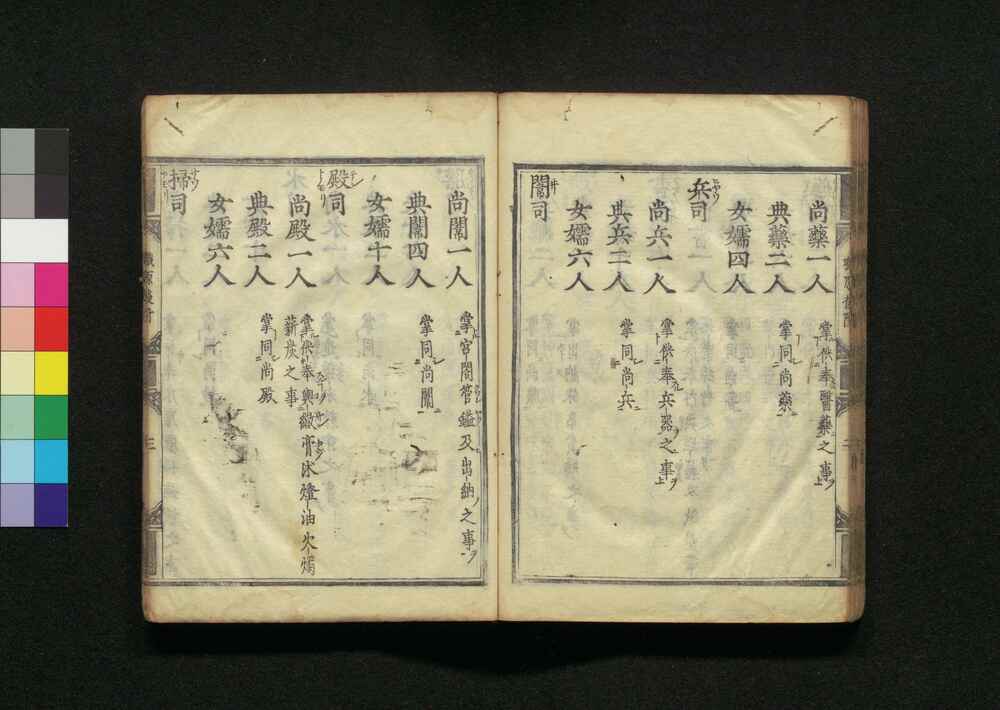 尚藥一人 掌供奉醫藥之事
典藥二人 掌同尚藥
女孺四人
兵司
尚兵一人 掌供奉兵器之事
典兵二人 掌同尚兵
女孺六人
闈司
尚闈一人 掌宮閤管鑰及出納之事
典闈四人 掌同尚闈
女孺十人
殿司
尚殿一人 掌供奉輿繖膏沐燈油火燭
薪炭之事
典殿二人 掌同尚殿
女孺六人
掃司